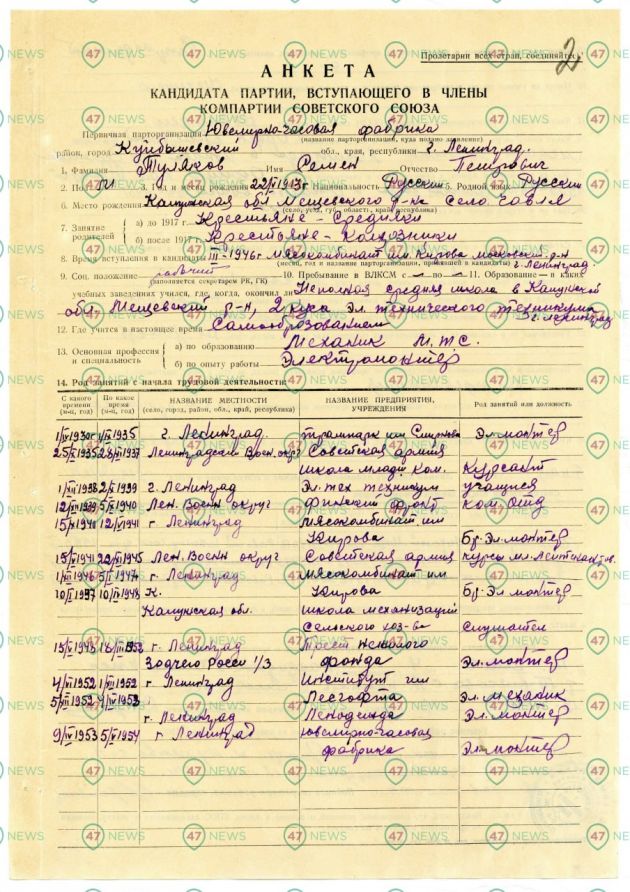 Пролетарии всех стран, соединяйтесь!
2
АНКЕТА
КАНДИДАТА ПАРТИИ, ВСТУПАЮЩЕГО В ЧЛЕНЫ
КОМПАРТИИ СОВЕТСКОГО СОЮЗА
Первичная парторганизация Ювелирно-часовая фабрика
(название парторганизации, куда подано заявление)
район, город Куйбышевский обл., края, республики г. Ленинград.
1. Фамилия Туляков Имя Семен Отчество Петрович
2. Пол М 3. Год и месяц рождения 1913г. Национальность Русский 5. Родной язык Русский
6. Место рождения Калужская обл. Мещевского р-на село
(село, город, область, край, республика)
7. Занятие родителей
а) до 1917 г. Крестьяне-средняки
б) после 1917 г. Крестьяне-колхозники
8. Время вступления в кандидаты III-1946г. мясокомбинат им Кирова московский р-н
(месяц, год и название парторганизации, принявшей в кандидаты) г Ленинград.
9. Соц. положение рабочий 10. Пребывание в ВЛКСМ с — по — 11. Образование — в каких
(заполняется секретарем РК, ГК)
учебных заведениях учился, где, когда, окончил ли Неполная средняя школа в Калужской
обл. Мещевский р-н, 2 курса эл. технического техникума г. Ленинград
12. Где учится в настоящее время Самообразованием
13. Основная профессия и специальность
а) по образованию Механик М.Т.С.
б) по опыту работы Электромонтер
14. Род занятий с начала трудовой деятельности:
С какого времени (м-ц, год) По какое время (м-ц, год) НАЗВАНИЕ МЕСТНОСТИ (село, город, район, обл., край, республика) НАЗВАНИЕ ПРЕДПРИЯТИЯ, УЧРЕЖДЕНИЯ Род занятий или должность
1935 г. Ленинград. трампарк им Смирнова Эл. монтер
1935 1937 Ленинградский Воен. округ Советская армия
школа младш. ком. курсант
1938 1939 г. Ленинград Эл. тех техникум учащийся
1939 1940 Лен. Военн округ Финский фронт ком. отд
1940 1941 г Ленинград мясокомбинат им
Кирова Бр. Эл. монтер
1941 1945 Лен. Военн округ Советская армия курсы мл. лейтенантов.
1946 1947 г. Ленинград мясокомбинат им
1947 1948 К. Кирова Бр. Эл монтер
Калужская обл. школа механизации
сельского хоз-ва слушател
1952 г. Ленинград Трест нежилого
Зодчего Росси 1/3 фонда Эл. монтер
1952 1952 г Ленинград Институт им
1952 Лесгофта Эл. механик
г. Ленинград Ленодежда Эл. монтер
1953 1954 г Ленинград Ювелирно-часовая
фабрика Эл. монтер
47 NEWS